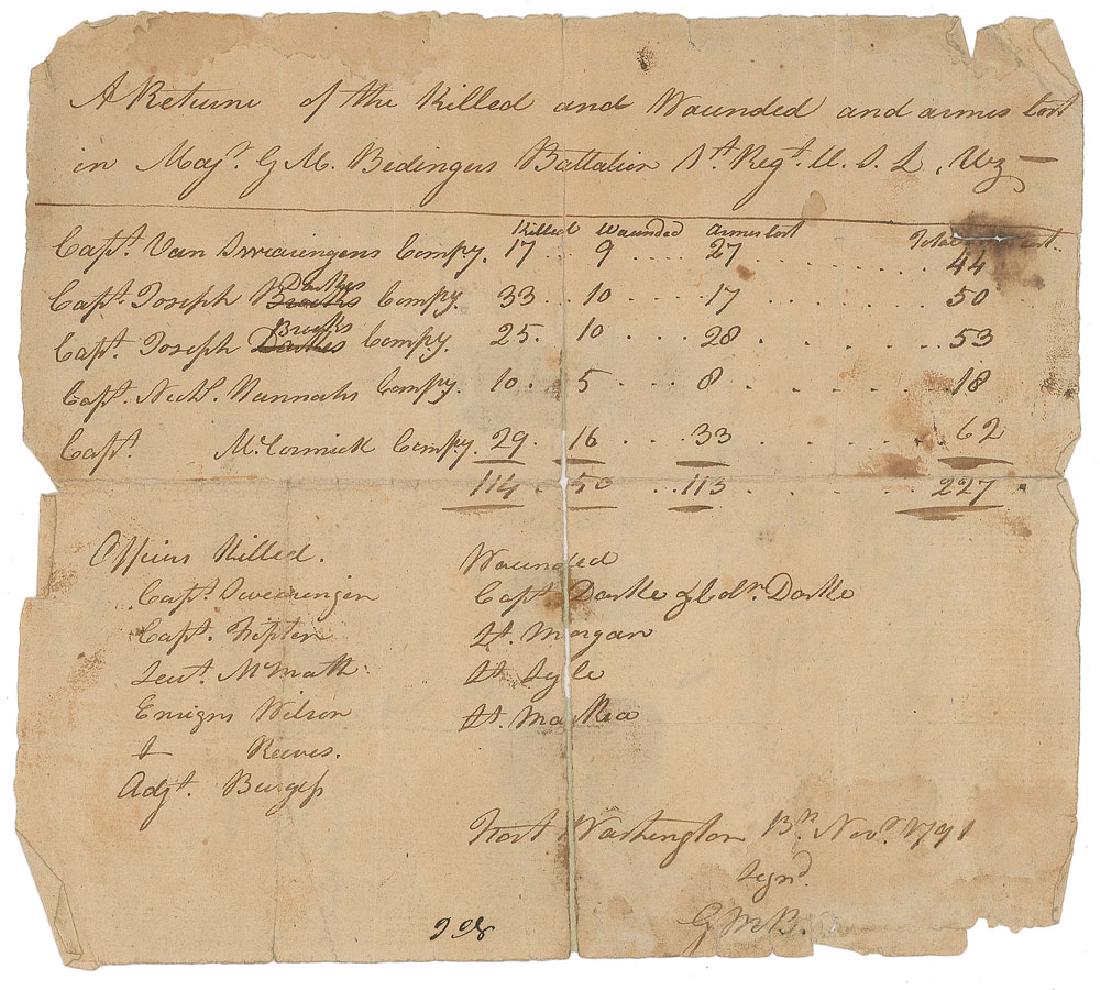 A Return of the Killed and Wounded and armes lost
in Majr. G M. Bedingers Battalion 1st. Regt. U. S. L, Viz —
Killed Wounded Armes lost Total
Capt. Van Swearingens Compy. 17 .. 9 .... 27 ........ 44
Capt. Joseph Brooks Darkes Compy. 33 .. 10 .... 17 ........ 50
Capt. Joseph Darkes Brooks Compy. 25. .. 10 .... 28 ........ 53
Capt. Nichs. Hannahs Compy. 10 .. 5 .... 8 ........ 18
Capt. McCormick Compy. 29 . 16 .... 33 ........ 62
114 . 50 ... 113 ........ 227
Officers Killed. Wounded
Capt. Swearingen Capt. Darke of Col. Darke
Capt. Tipton Lt. Morgan
Leut. McMath Lt. Lyle
Ensigns Wilson Lt.
& Reeves.
Adjt. Burgess
Fort Washington 13th. Novr. 1791
Signd.
G M B.